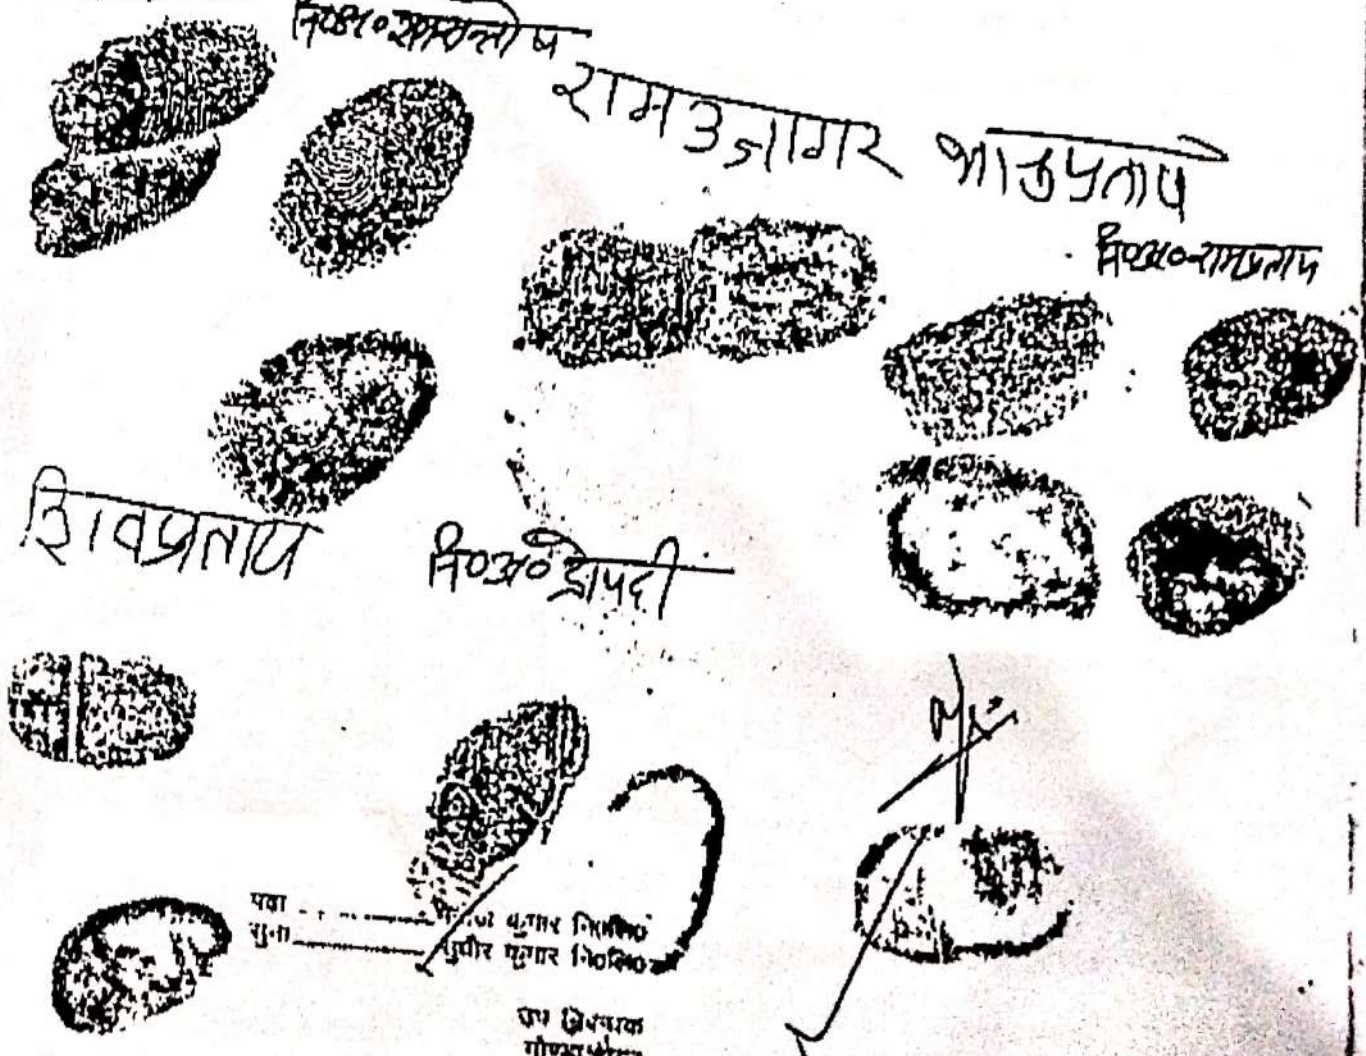 नि०अ० रामसन्तोष
रामउजागर
भानुप्रताप
नि०अ० रामप्रताप
शिवप्रताप
नि०अ० द्रोपदी
पढा कुमार नि०लि०
सुना सुधीर कुमार नि०लि०
उप निबन्धक